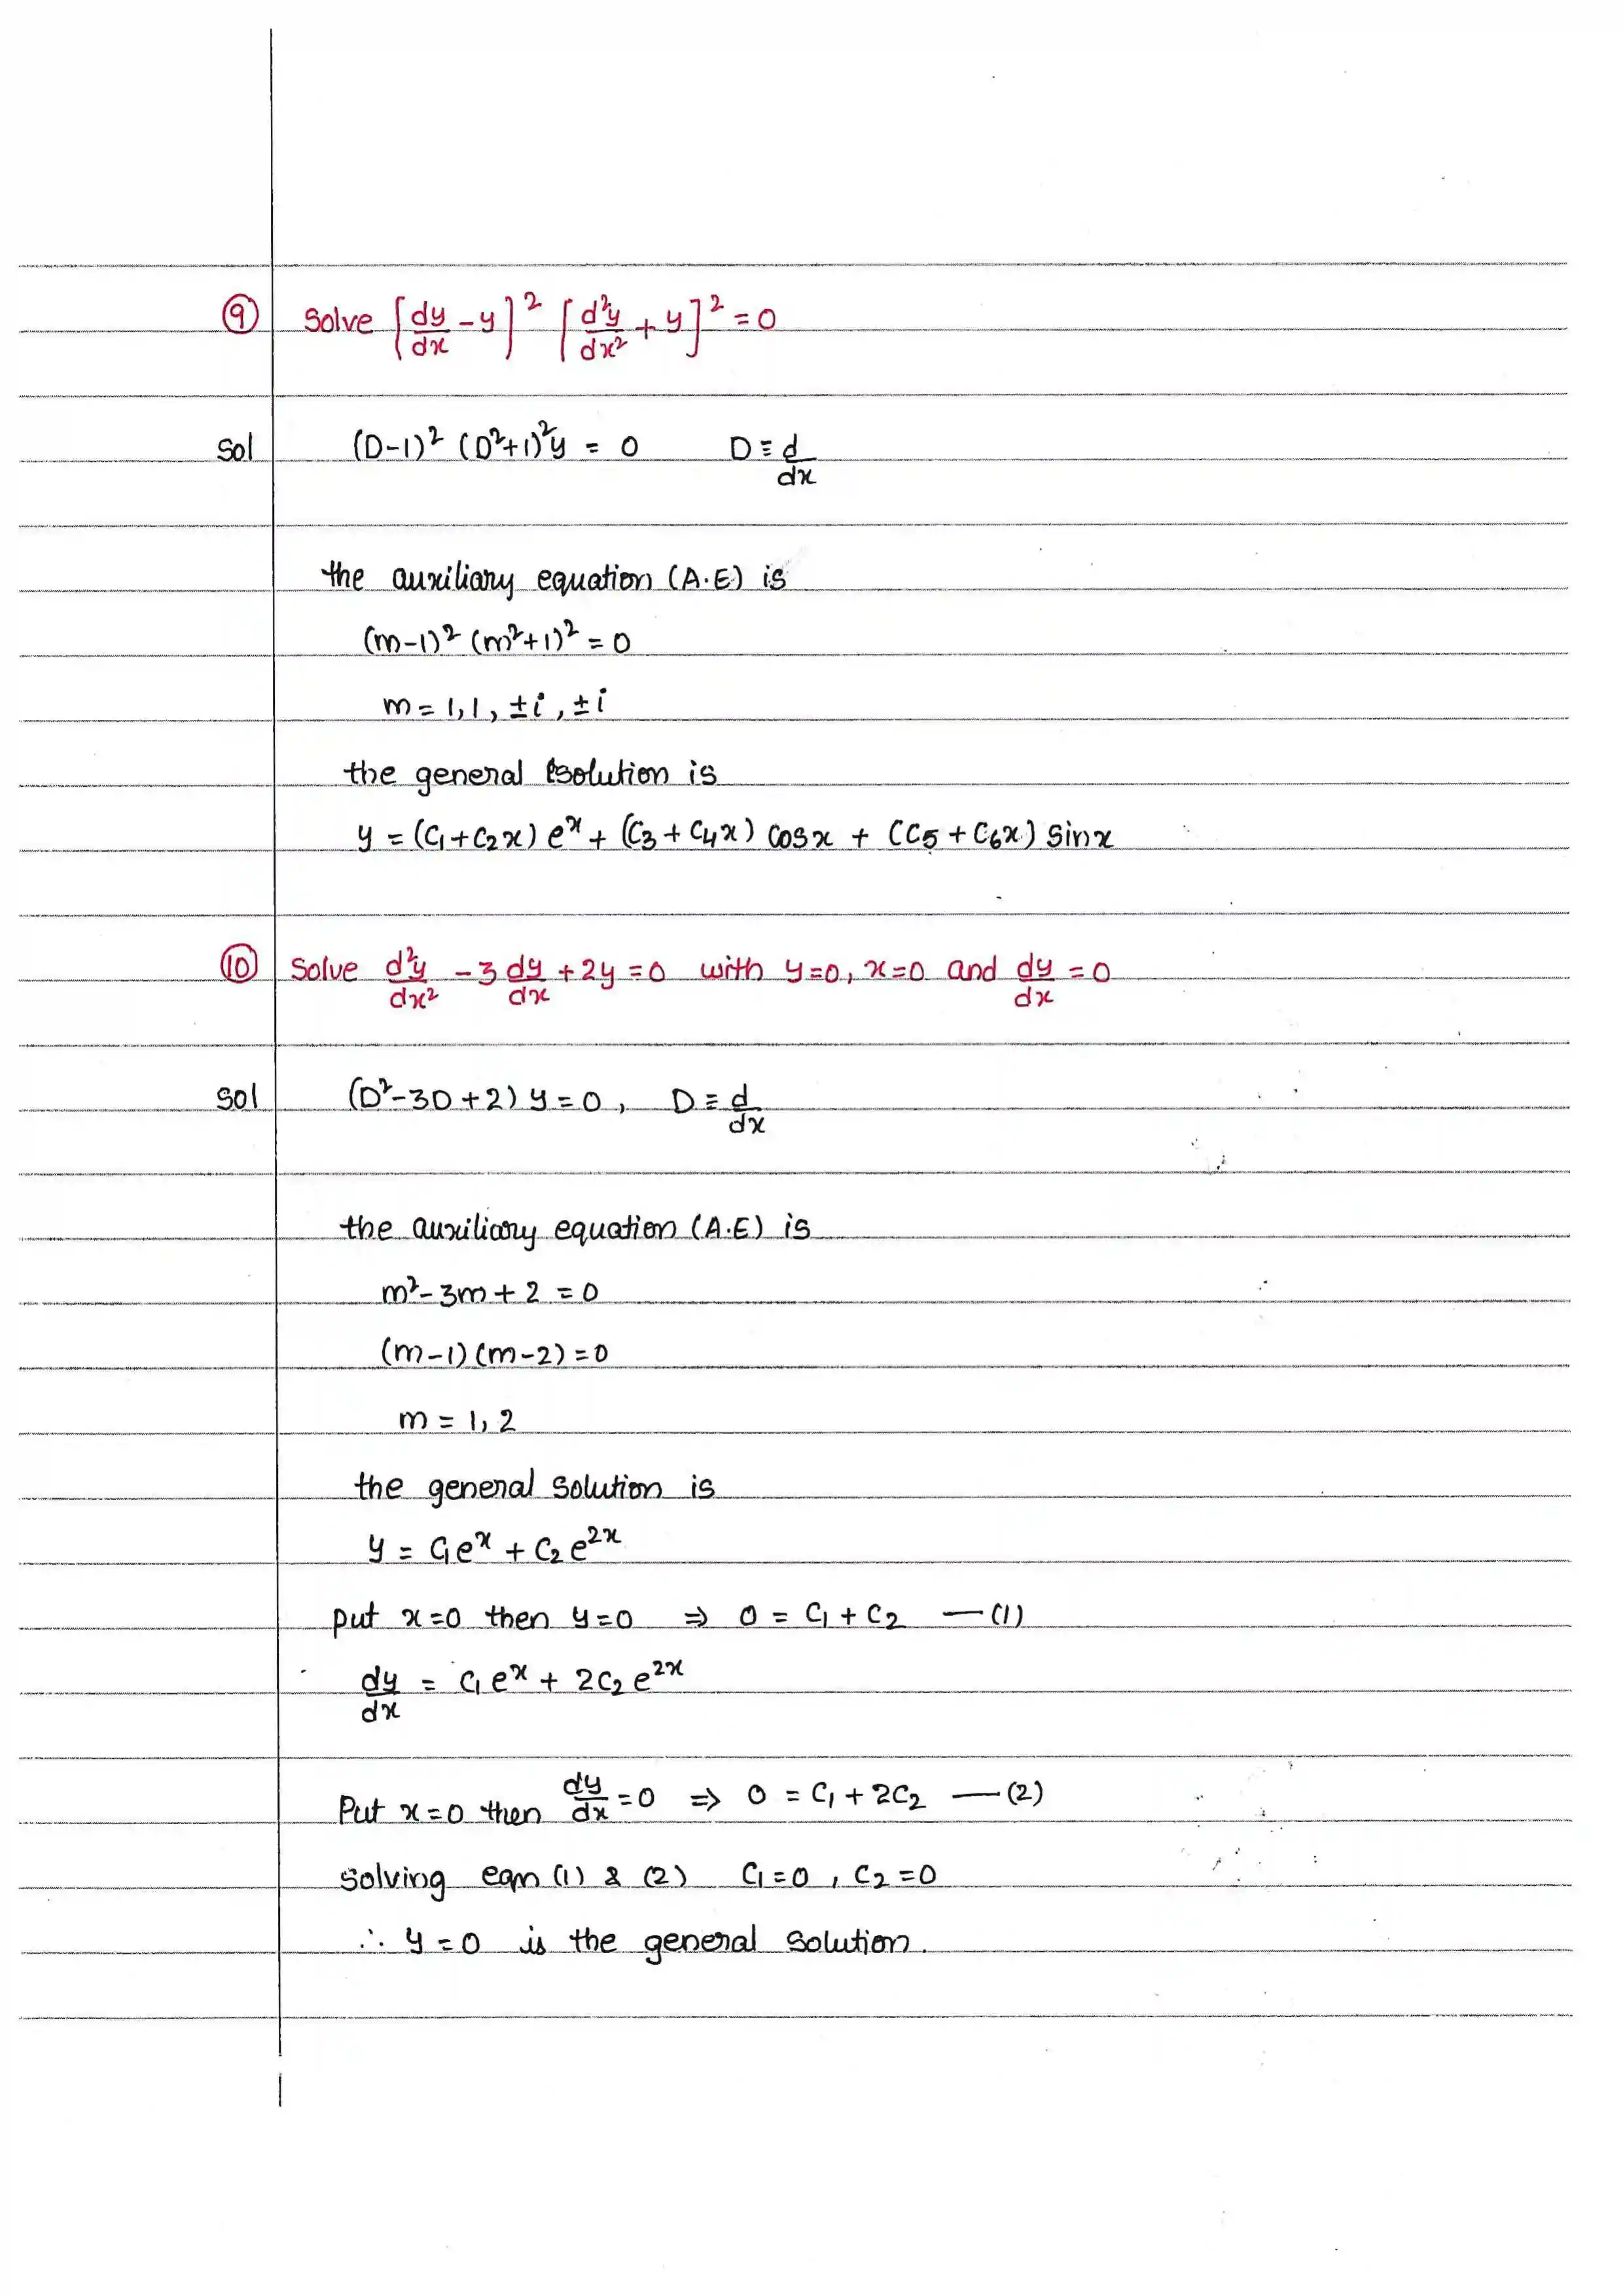 ⑨ Solve [dy/dx - y]² [d²y/dx² + y]² = 0
Sol (D-1)² (D²+1)²y = 0 D ≡ d/dx
the auxiliary equation (A.E) is
(m-1)² (m²+1)² = 0
m = 1,1, ±i, ±i
the general solution is
y = (C₁+C₂x) eˣ + (C₃+C₄x) cosx + (C₅+C₆x) sinx
⑩ Solve d²y/dx² - 3 dy/dx + 2y = 0 with y=0, x=0 and dy/dx = 0
Sol (D²-3D+2) y = 0, D ≡ d/dx
the auxiliary equation (A.E) is
m²-3m+2 = 0
(m-1)(m-2) = 0
m = 1, 2
the general solution is
y = C₁eˣ + C₂e²ˣ
put x=0 then y=0 ⇒ 0 = C₁ + C₂ —(1)
dy/dx = C₁eˣ + 2C₂e²ˣ
Put x=0 then dy/dx = 0 ⇒ 0 = C₁ + 2C₂ —(2)
solving eqn (1) & (2) C₁=0, C₂=0
∴ y=0 is the general solution.